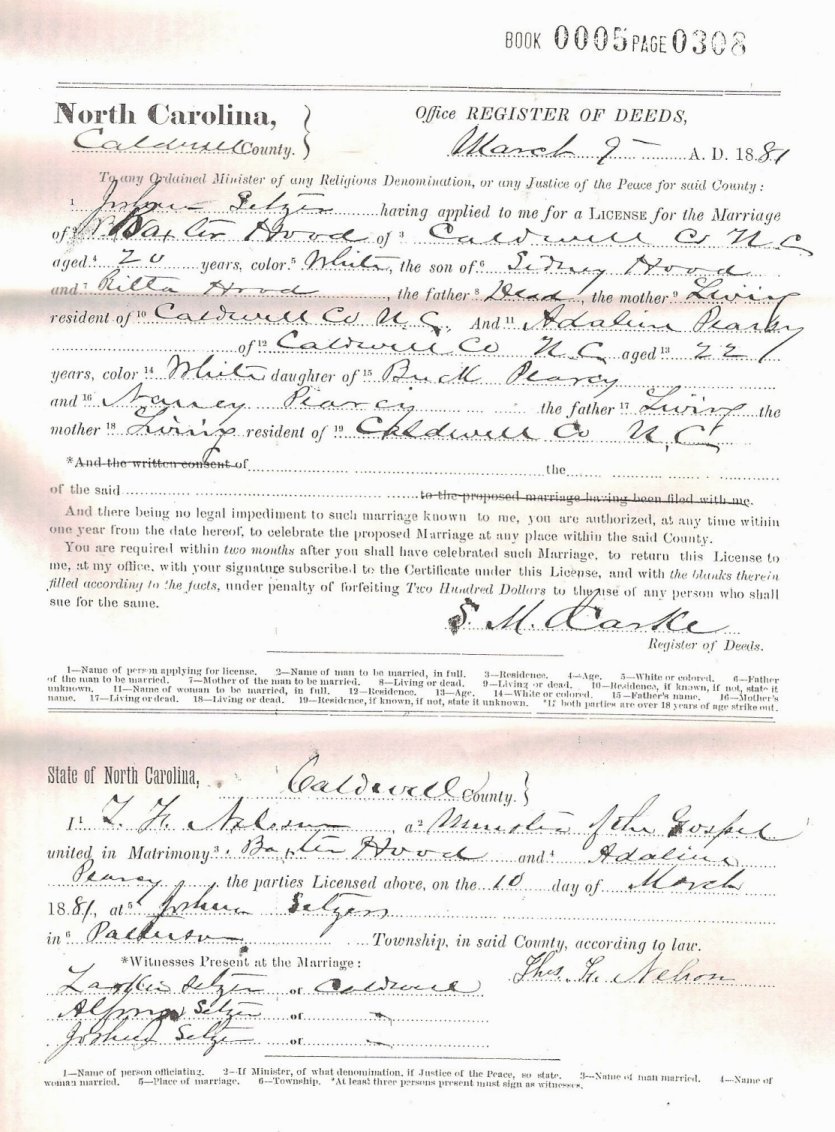 BOOK 0005 PAGE 0308
North Carolina, Office REGISTER OF DEEDS,
Caldwell County. March 9 A. D. 1881
To any Ordained Minister of any Religious Denomination, or any Justice of the Peace for said County:
1 Joshua Setzer having applied to me for a LICENSE for the Marriage
of 2 Baxter Hood of 3 Caldwell Co N C
aged 4 20 years, color 5 White, the son of 6 Sidney Hood
and 7 Rilla Hood, the father 8 Dead, the mother 9 Living
resident of 10 Caldwell Co N C, And 11 Adaline Pearcy
of 12 Caldwell Co N. C. aged 13 22
years, color 14 White daughter of 15 Buck Pearcy
and 16 Nancy Pearcy the father 17 Living the
mother 18 Living resident of 19 Caldwell Co N. C
*And the written consent of the
of the said to the proposed marriage having been filed with me.
And there being no legal impediment to such marriage known to me, you are authorized, at any time within
one year from the date hereof, to celebrate the proposed Marriage at any place within the said County.
You are required within two months after you shall have celebrated such Marriage, to return this License to
me, at my office, with your signature subscribed to the Certificate under this License, and with the blanks therein
filled according to the facts, under penalty of forfeiting Two Hundred Dollars to the use of any person who shall
sue for the same.
S. M.
Register of Deeds.
1—Name of person applying for license. 2—Name of man to be married, in full. 3—Residence. 4—Age. 5—White or colored. 6—Father
of the man to be married. 7—Mother of the man to be married. 8—Living or dead. 9—Living or dead. 10—Residence, if known, if not, state it
unknown. 11—Name of woman to be married, in full. 12—Residence. 13—Age. 14—White or colored. 15—Father's name. 16—Mother's
name. 17—Living or dead. 18—Living or dead. 19—Residence, if known, if not, state it unknown. *If both parties are over 18 years of age strike out.
State of North Carolina, Caldwell County.
I 1 T. H. Nelson, a 2 Minister of the Gospel
united in Matrimony 3 Baxter Hood and 4 Adaline
Pearcy, the parties Licensed above, on the 10 day of March
1881, at 5 Joshua Setzers
in 6 Patterson Township, in said County, according to law.
*Witnesses Present at the Marriage: Thos. H. Nelson
Setzer of Caldwell
Setzer of "
Joshua Setzer of "
1—Name of person officiating. 2—If Minister, of what denomination, if Justice of the Peace, so state. 3—Name of man married. 4—Name of
woman married. 5—Place of marriage. 6—Township. *At least three persons present must sign as witnesses.